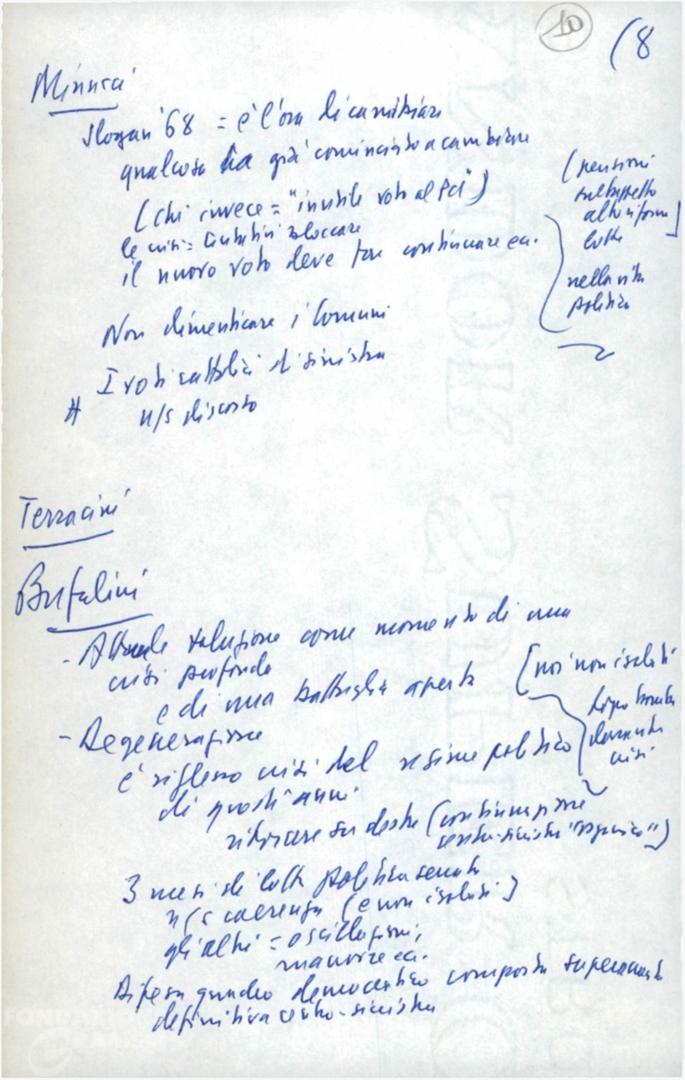 10
(8
Minucci
Slogan '68 = è l'ora di cambiare
qualcosa ha già cominciato a cambiare
(chi invece = "inutile voto al Pci")
le crisi = tentativi bloccare
il nuovo voto deve far continuare ecc.
(pensioni
sull'aspetto
altre riforme
lotte
nella vita
politica
Non dimenticare i Comuni
I voti cattolici di sinistra
# n/s discorso
Terracini
Bufalini
- Attuale soluzione come momento di una
crisi profonda
e di una battaglia aperta
(noi non isolati
dopo
durante
crisi
- Degenerazione
è riflesso crisi del regime politico
di questi anni
ritorcere su destre (continuazione
centro-sinistra "organico")
3 mesi di lotta politica serrata
n/s coerenza (e non isolati)
gli altri = oscillazioni,
manovre ecc.
Difesa quadro democratico comporta superamento
definitiva centro-sinistra
FON